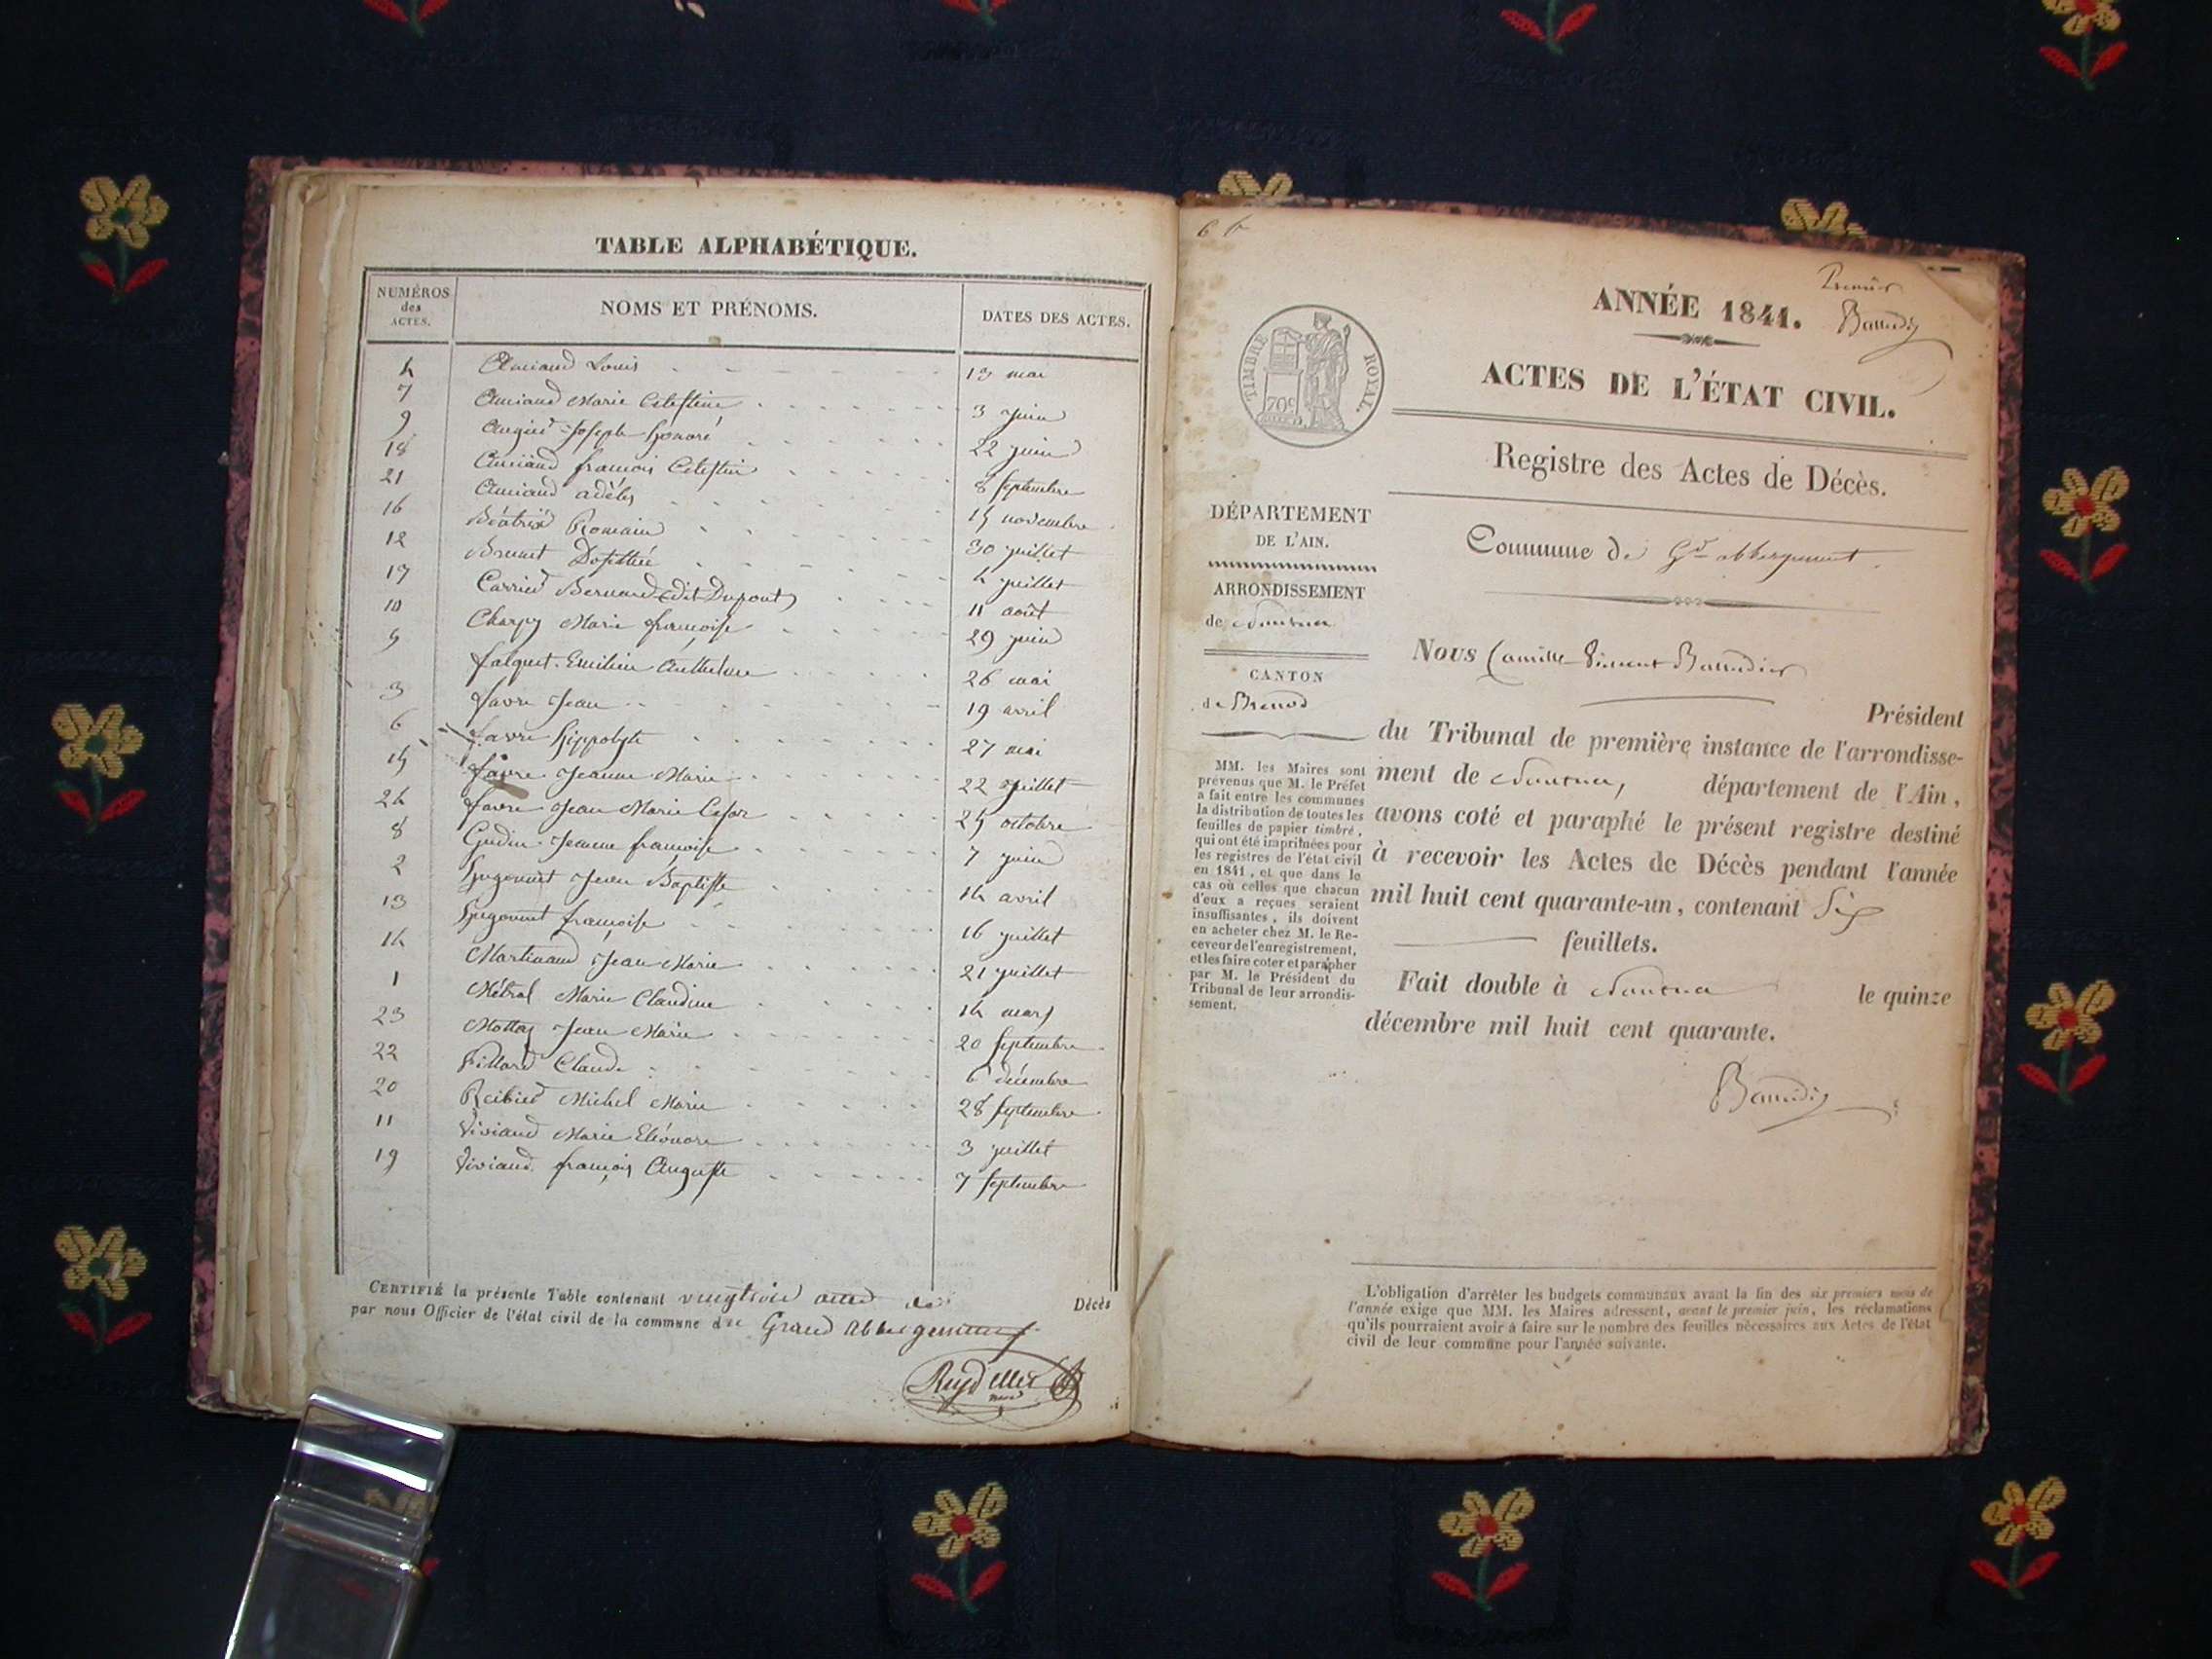 TABLE ALPHABÉTIQUE.
NUMÉROS des ACTES. NOMS ET PRÉNOMS. DATES DES ACTES.
4 Amiand Louis 13 mai
7 Amiand Marie Celestine 3 juin
9 Joseph honoré 22 juin
18 Amiand françois Celestin 8 septembre
21 Amiand adèle 15 novembre
16 Béatrix Romain 30 juillet
12 Brunet Dorothée 4 juillet
17 Carrier Bernard dit Dupont 11 août
10 Charpy Marie françoise 29 juin
5 falquet Emilien 26 mai
3 favre Jean 19 avril
6 favre hippolyte 27 mai
15 favre Jeanne Marie 22 juillet
24 favre Jean Marie Cesar 25 octobre
8 Jeanne françoise 7 juin
2 hugonnet Jean Baptiste 14 avril
13 hugonnet françoise 16 juillet
14 Martinand Jean Marie 21 juillet
1 Métral Marie Claudine 14 mars
23 Mottaz Jean Marie 20 septembre
22 Pillard Claude 6 décembre
20 Michel Marie 28 septembre
11 Viviand Marie Eléonore 3 juillet
19 Viviand françois Auguste 7 septembre
CERTIFIÉ la présente Table contenant de Décès
par nous Officier de l'état civil de la commune du Grand abbergement
ANNÉE 1841.
TIMBRE ROYAL.
70c
ACTES DE L'ÉTAT CIVIL.
Registre des Actes de Décès.
Commune de Gd abbergement
DÉPARTEMENT
DE L'AIN.
ARRONDISSEMENT
de Nantua
CANTON
de Brenod
MM. les Maires sont
prévenus que M. le Préfet
a fait entre les communes
la distribution de toutes les
feuilles de papier timbré,
qui ont été imprimées pour
les registres de l'état civil
en 1841, et que dans le
cas où celles que chacun
d'eux a reçues seraient
insuffisantes, ils doivent
en acheter chez M. le Re-
ceveur de l'enregistrement,
et les faire coter et parapher
par M. le Président du
Tribunal de leur arrondis-
sement.
Nous Camille Vincent
Président
du Tribunal de première instance de l'arrondisse-
ment de Nantua, département de l'Ain,
avons coté et paraphé le présent registre destiné
à recevoir les Actes de Décès pendant l'année
mil huit cent quarante-un, contenant Six
feuillets.
Fait double à Nantua le quinze
décembre mil huit cent quarante.
L'obligation d'arrêter les budgets communaux avant la fin des six premiers mois de
l'année exige que MM. les Maires adressent, avant le premier juin, les réclamations
qu'ils pourraient avoir à faire sur le nombre des feuilles nécessaires aux Actes de l'état
civil de leur commune pour l'année suivante.